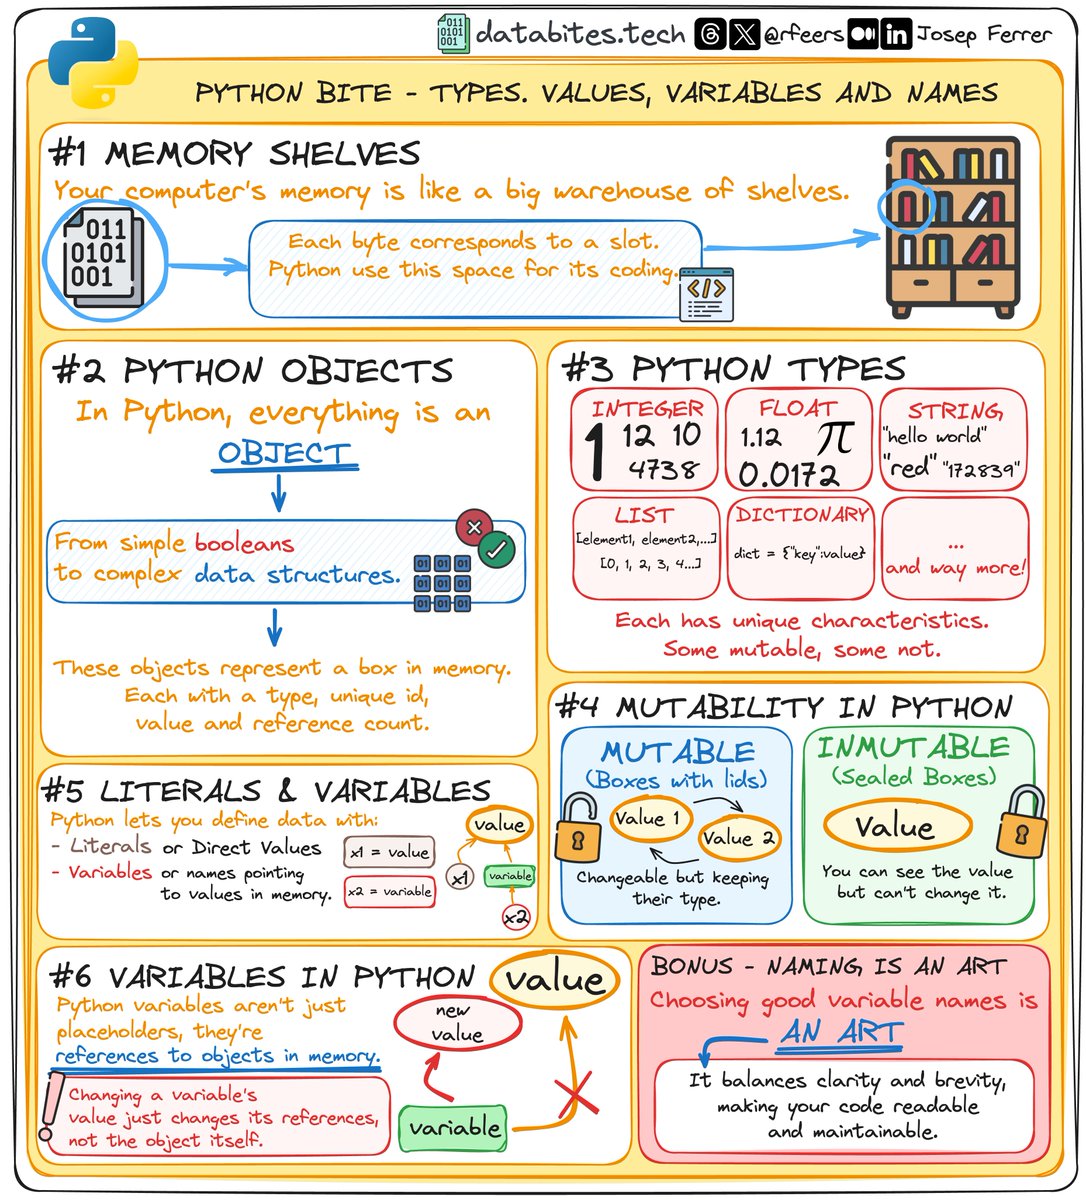 011
0101
001
databites.tech
@rfeers
Josep Ferrer
PYTHON BITE - TYPES. VALUES, VARIABLES AND NAMES
#1 MEMORY SHELVES
Your computer's memory is like a big warehouse of shelves.
011
0101
001
Each byte corresponds to a slot.
Python use this space for its coding.
</>
#2 PYTHON OBJECTS
In Python, everything is an
OBJECT
From simple booleans
to complex data structures.
01 01 01
01 01 01
01 01 01
These objects represent a box in memory.
Each with a type, unique id,
value and reference count.
#3 PYTHON TYPES
INTEGER
1 12 10
4738
FLOAT
1.12 π
0.0172
STRING
"hello world"
"red" "172839"
LIST
[element1, element2,...]
[0, 1, 2, 3, 4...]
DICTIONARY
dict = {"key":value}
...
and way more!
Each has unique characteristics.
Some mutable, some not.
#4 MUTABILITY IN PYTHON
MUTABLE
(Boxes with lids)
Value 1
Value 2
Changeable but keeping
their type.
INMUTABLE
(Sealed Boxes)
Value
You can see the value
but can't change it.
#5 LITERALS & VARIABLES
Python lets you define data with:
- Literals or Direct Values
- Variables or names pointing
to values in memory.
x1 = value
x2 = variable
value
x1
variable
x2
#6 VARIABLES IN PYTHON
Python variables aren't just
placeholders, they're
references to objects in memory.
Changing a variable's
value just changes its references,
not the object itself.
value
new
value
variable
BONUS - NAMING IS AN ART
Choosing good variable names is
AN ART
It balances clarity and brevity,
making your code readable
and maintainable.